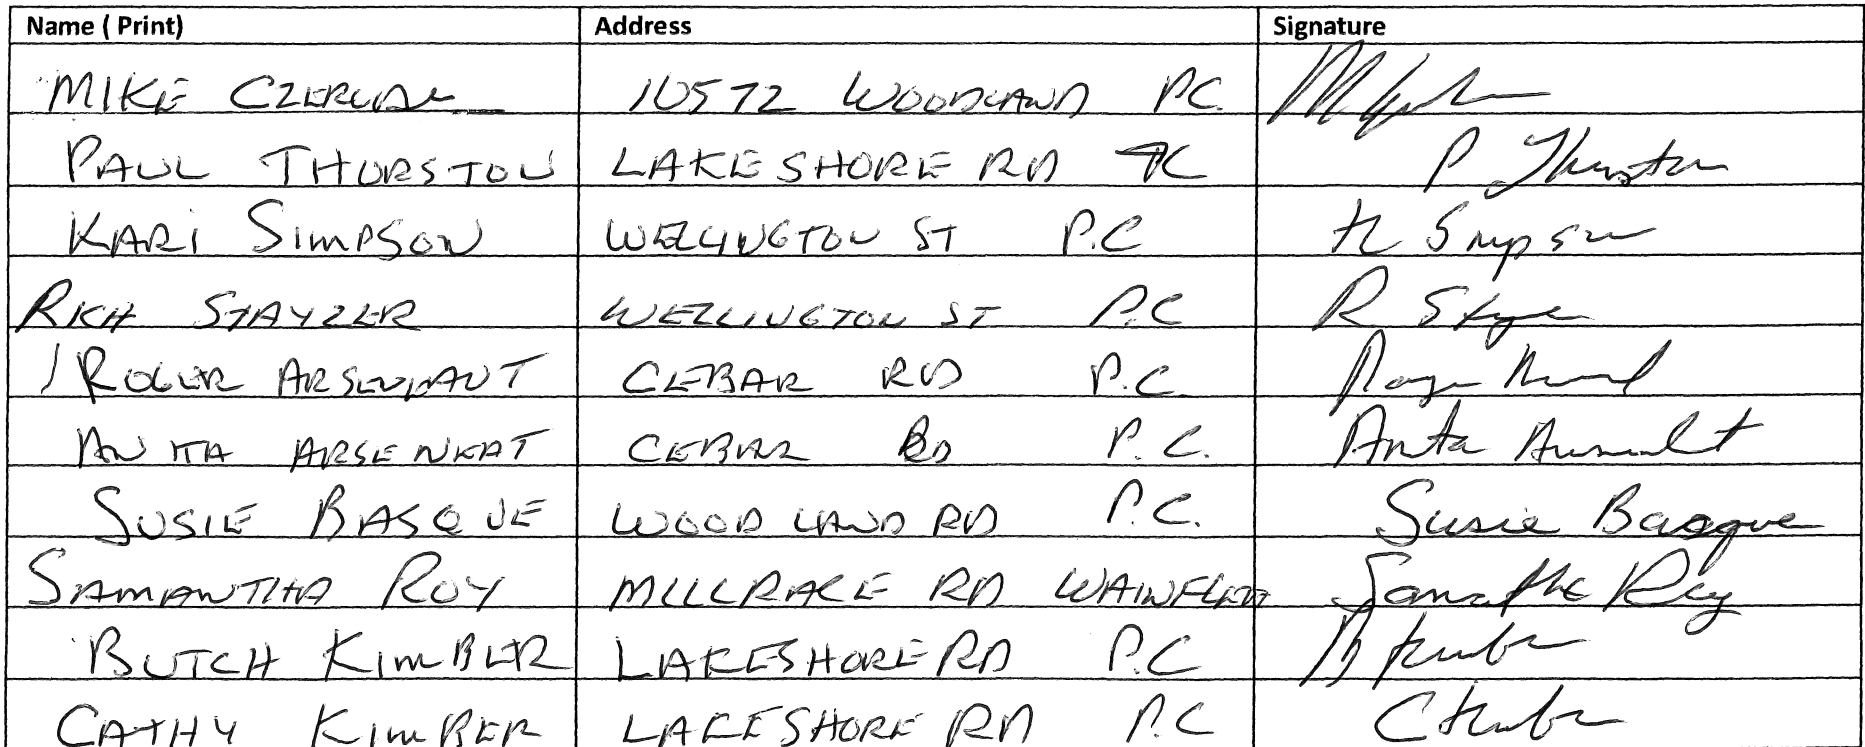 Name ( Print) Address Signature
MIKE 10572 WOODLAND P.C.
PAUL THURSTON LAKESHORE RD PC P Thurston
KARI SIMPSON WELLINGTON ST P.C K Simpson
RICH STAYZER WELLINGTON ST P.C R
ROGER ARSENAUT CEBAR RD P.C. Roger
ANITA ARSENEAT CEBAR RD P.C. Anita
SUSIE BASQUE WOODLAND RD P.C. Susie Basque
SAMANTHA ROY MILLRACE RD WAINFLEET Samantha Roy
BUTCH KIMBER LAKESHORE RD P.C B Kimber
CATHY KIMBER LAKESHORE RD P.C C Kimber